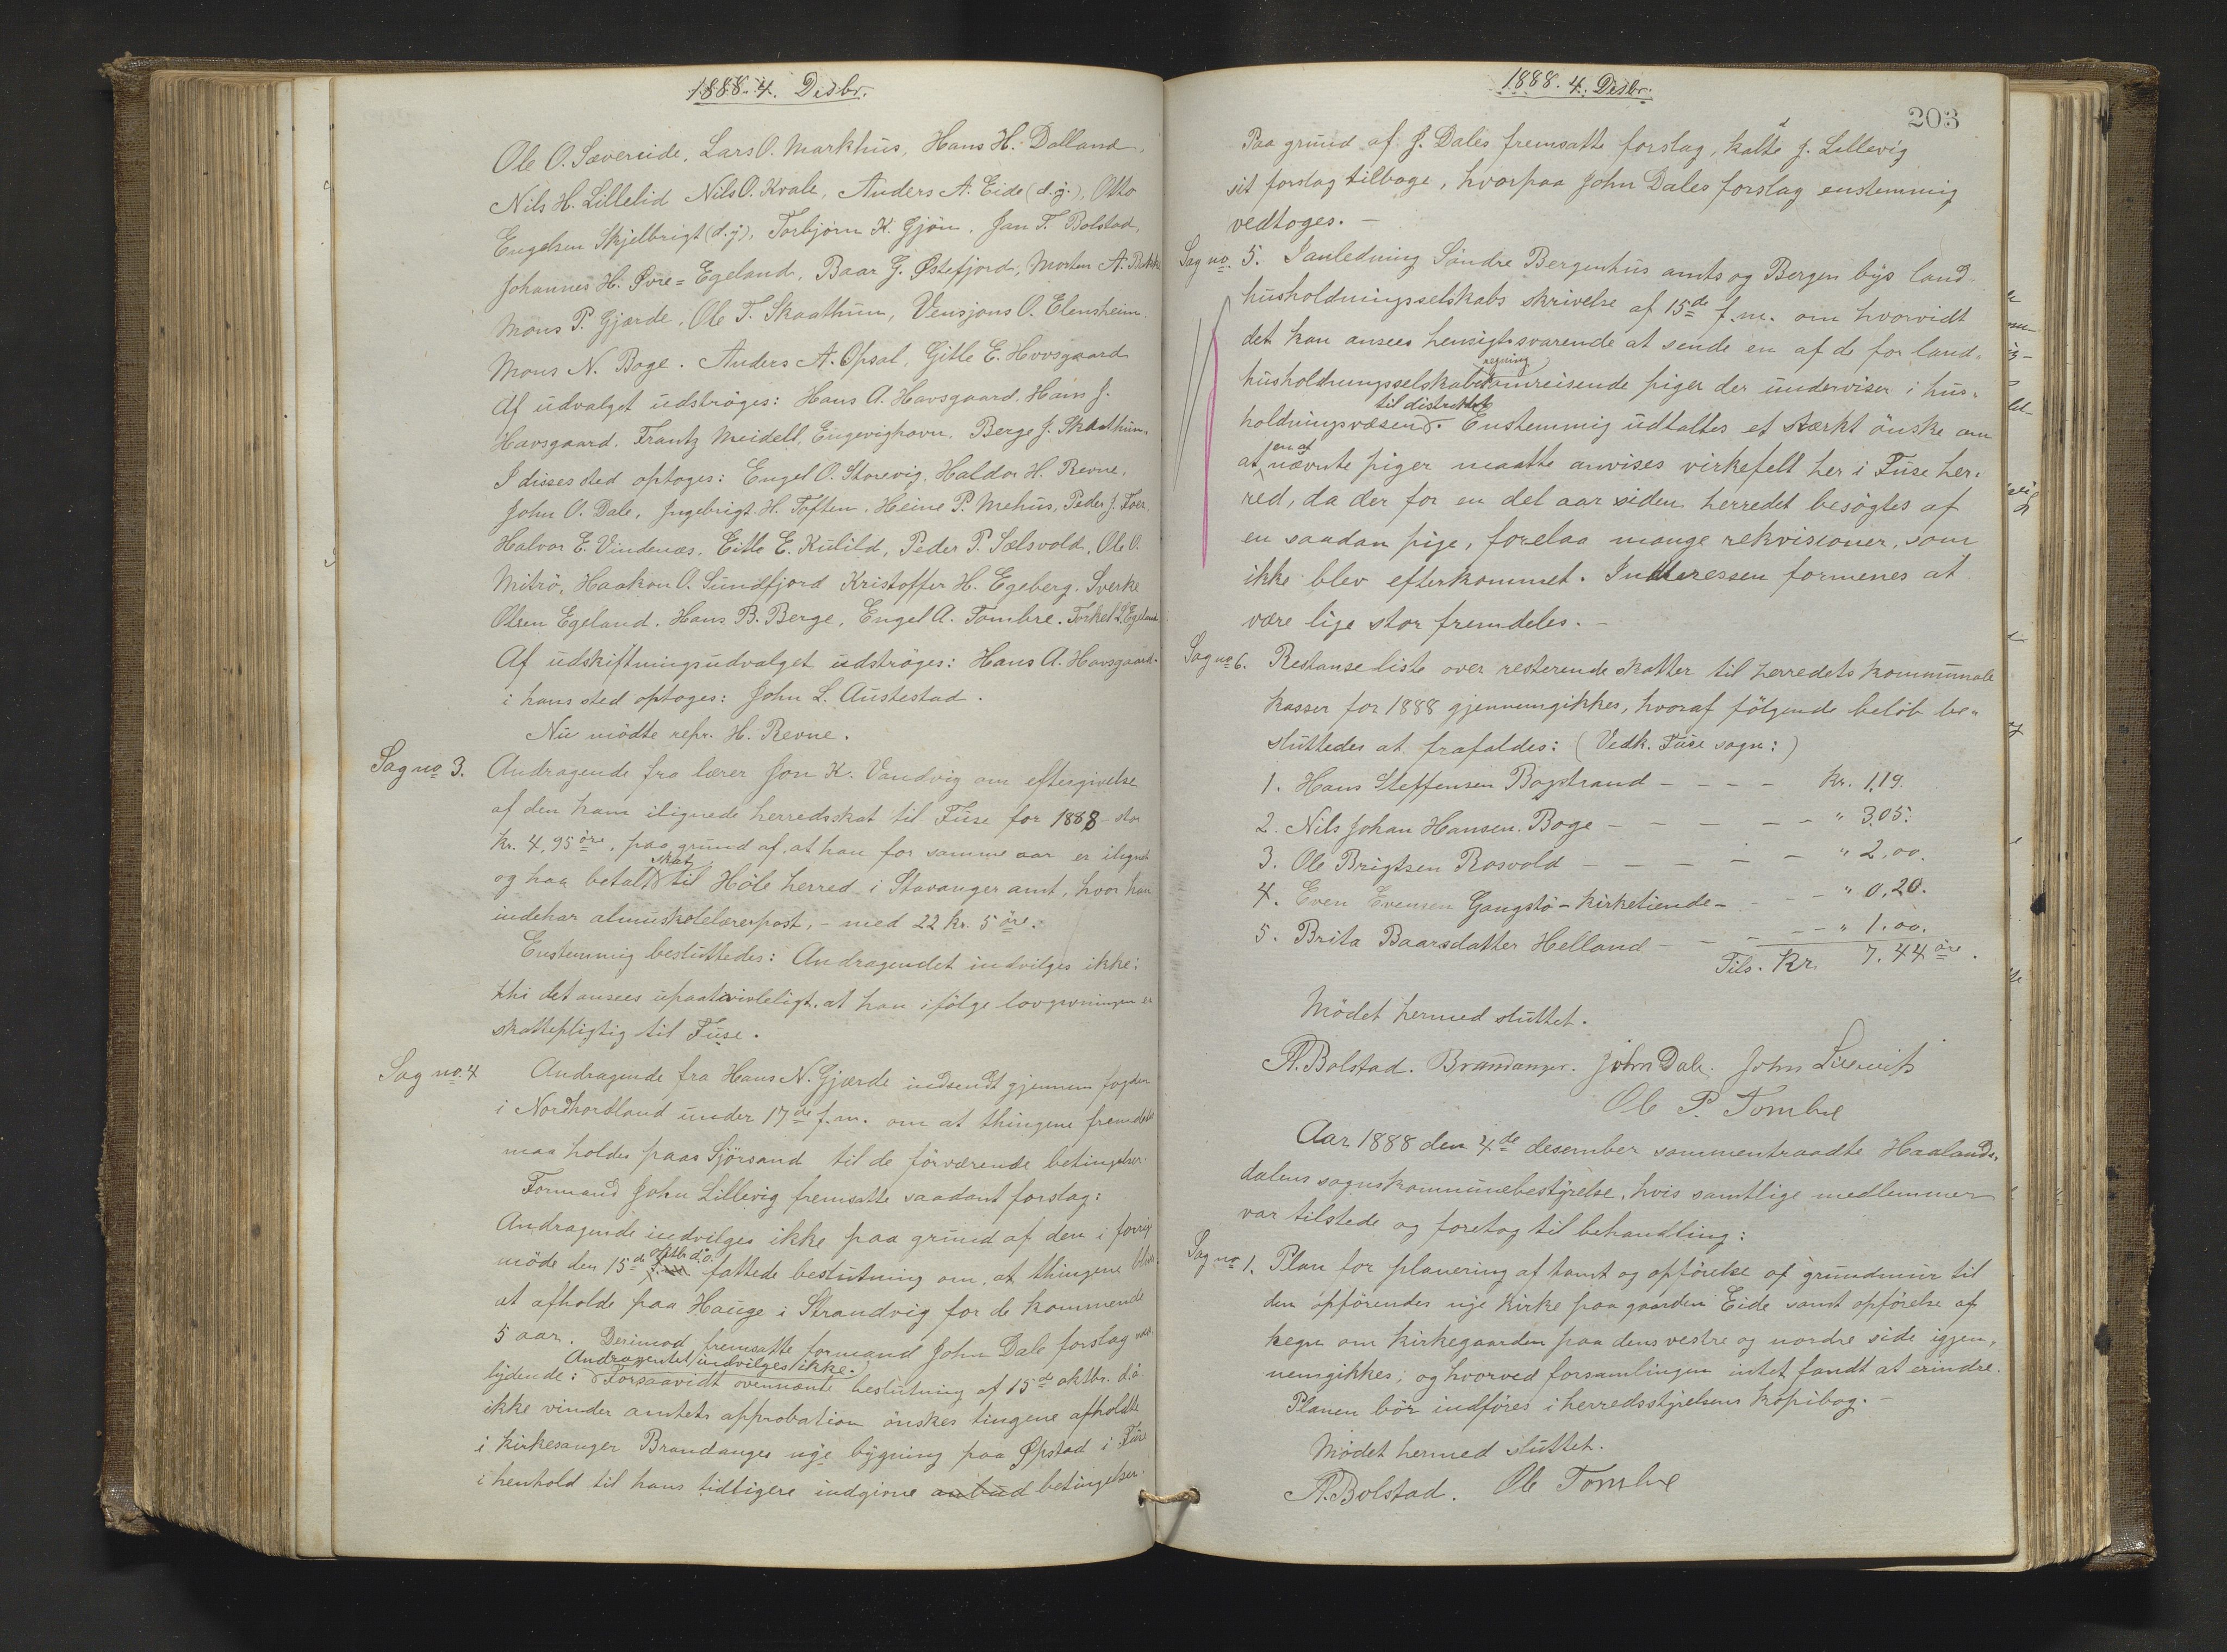 1888. 4. Desbr.
Ole O. Sævereide, Lars O. Markhus, Hans H. Dalland,
Nils H. Lillelid Nils O. Kvale, Anders A. Eide (d.y.), Otto
Engelsen Skjelbrigt (d.y), Torbjørn K. Gjøn, Jan T. Bolstad,
Johannes H. Øvre=Egeland, Baar G. Østefjord, Morten A.
Mons P. Gjærde, Ole T. Skaathun, Vensjans O. Elensheim.
Mons N. Boge. Anders A. Opsal, Gitle E. Hovsgaard
Af udvalget udströges: Hans A. Havsgaard, Hans J.
Havsgaard, Frantz Meidell, Engevighavn, Berge J. Skaathun.
I disses sted optoges: Engel O. Storevig, Haldor H. Revne,
John O. Dale, Ingebrigt H. Toften, Heine P. Mehus, Peder J.
Halvor E. Vindenæs, Eitle E. Kulild, Peder P. Sælsvold, Ole O.
Miträ, Haakon O. Sundfjord Kristoffer H. Egeberg. Sverke
Olsen Egeland. Hans B. Berge, Engel A. Tombre. Torkel L. Egeland
Af udskiftningsudvalget udströges: Hans A. Havsgaard.
i hans sted optoges: John L. Austestad.
Nu mödte repr. H. Revne.
Sag no 3. Andragende fra lærer Jon K. Vandvig om eftergivelse
af den ham ilignede herredsskat til Fuse for 1888 stor
kr. 4,95 öre, paa grund af, at han for samme aar er ilignet
og har betalt skat til Höle herred i Stavanger amt, hvor han
indehar almuskolelærerpost, - med 22 kr. 5 öre.
Enstemmig besluttedes: Andragendet indvilges ikke;
thi det ansees upaatvivleligt, at han ifölge lovgivningen er
skattepligtig til Fuse.
Sag no. 4 Andragende fra Hans N. Gjærde indsendt gjennem fogden
i Nordhordland under 17de f.m. om at thingene fremdeles
maa holdes paa Sjörsand til de forværende betingelser.
Formand John Lillevig fremsatte saadant forslag:
Andragende indvilges ikke paa grund af den i forrige
möde den 15de oktbr d.a. fattede beslutning om, at thingene blive
at afholde paa Hauge i Strandvig for de kommende
5 aar. Derimod fremsatte formand John Dale forslag
Andragendet indvilges ikke.
lydende: Forsaavidt ovennævnte beslutning af 15de oktbr. d.a.
ikke vinder amtets approbation önskes tingene afholdte
i kirkesanger Brandanges nye bygning paa Øpstad i Fuse
i henhold til hans tidligere indgivne anbud betingelser.
1888. 4. Desbr.
203
Paa grund af J. Dales fremsatte forslag, kaldte J. Lillevig
sit forslag tilbage, hvorpaa John Dales forslag enstemmig
vedtoges. -
Sag no. 5. I anledning Söndre Bergenhus amts og Bergen bys land-
husholdningsselskabs skrivelse af 15de f.m. om hvorvidt
det kan ansees hensigtssvarende at sende en af de for land-
regning
husholdningsselskabets omreisende piger der underviser i hus-
til distriktet
holdningsvæsen. Enstemmig udtaltes et stærkt önske om
en af
at nævnte piger maatte anvises virkefelt her i Fuse her-
red, da der for en del aar siden herredet besögtes af
en saadan pige, forelaa mange rekvisioner, som
ikke blev efterkommet. Interessen formenes at
være lige stor fremdeles. -
Sag no 6. Restanseliste over resterende skatter til herredets kommunale
kasser for 1888 gjennemgikkes, hvoraf fölgende belöb be-
sluttedes at frafaldes: (Vedk. Fuse sogn:)
1. Hans Steffensen Bogstrand - - - - kr. 1,19.
2. Nils Johan Hansen Boge - - - - - " 3,05.
3. Ole Brigtsen Rosvold - - - - - " 2,00.
4. Even Evensen Gangstö - kirketiende - - - " 0,20.
5. Brita Baarsdatter Helland - - - - " 1.00.
Tils. Kr. 7,44 öre.
Mödet hermed sluttet.
A. Bolstad. Brandanger. John Dale. John Lillevik
Ole P. Tombre
Aar 1888 den 4de desember sammentraadte Haalands-
dalens sognskommunebestyrelse, hvis samtlige medlemmer
var tilstede og foretog til behandling:
Sag no 1. Plan for planering af tomt og opförelse af grundmur til
den opförendes nye kirke paa gaarden Eide samt opförelse af
hegn om kirkegaarden paa dens vestre og nordre side igjen-
nemgikkes, og hvorved forsamlingen intet fandt at erindre.
Planen bör indföres i herredsstyrelsens kopibog. -
Mödet hermed sluttet.
A. Bolstad. Ole Tombre